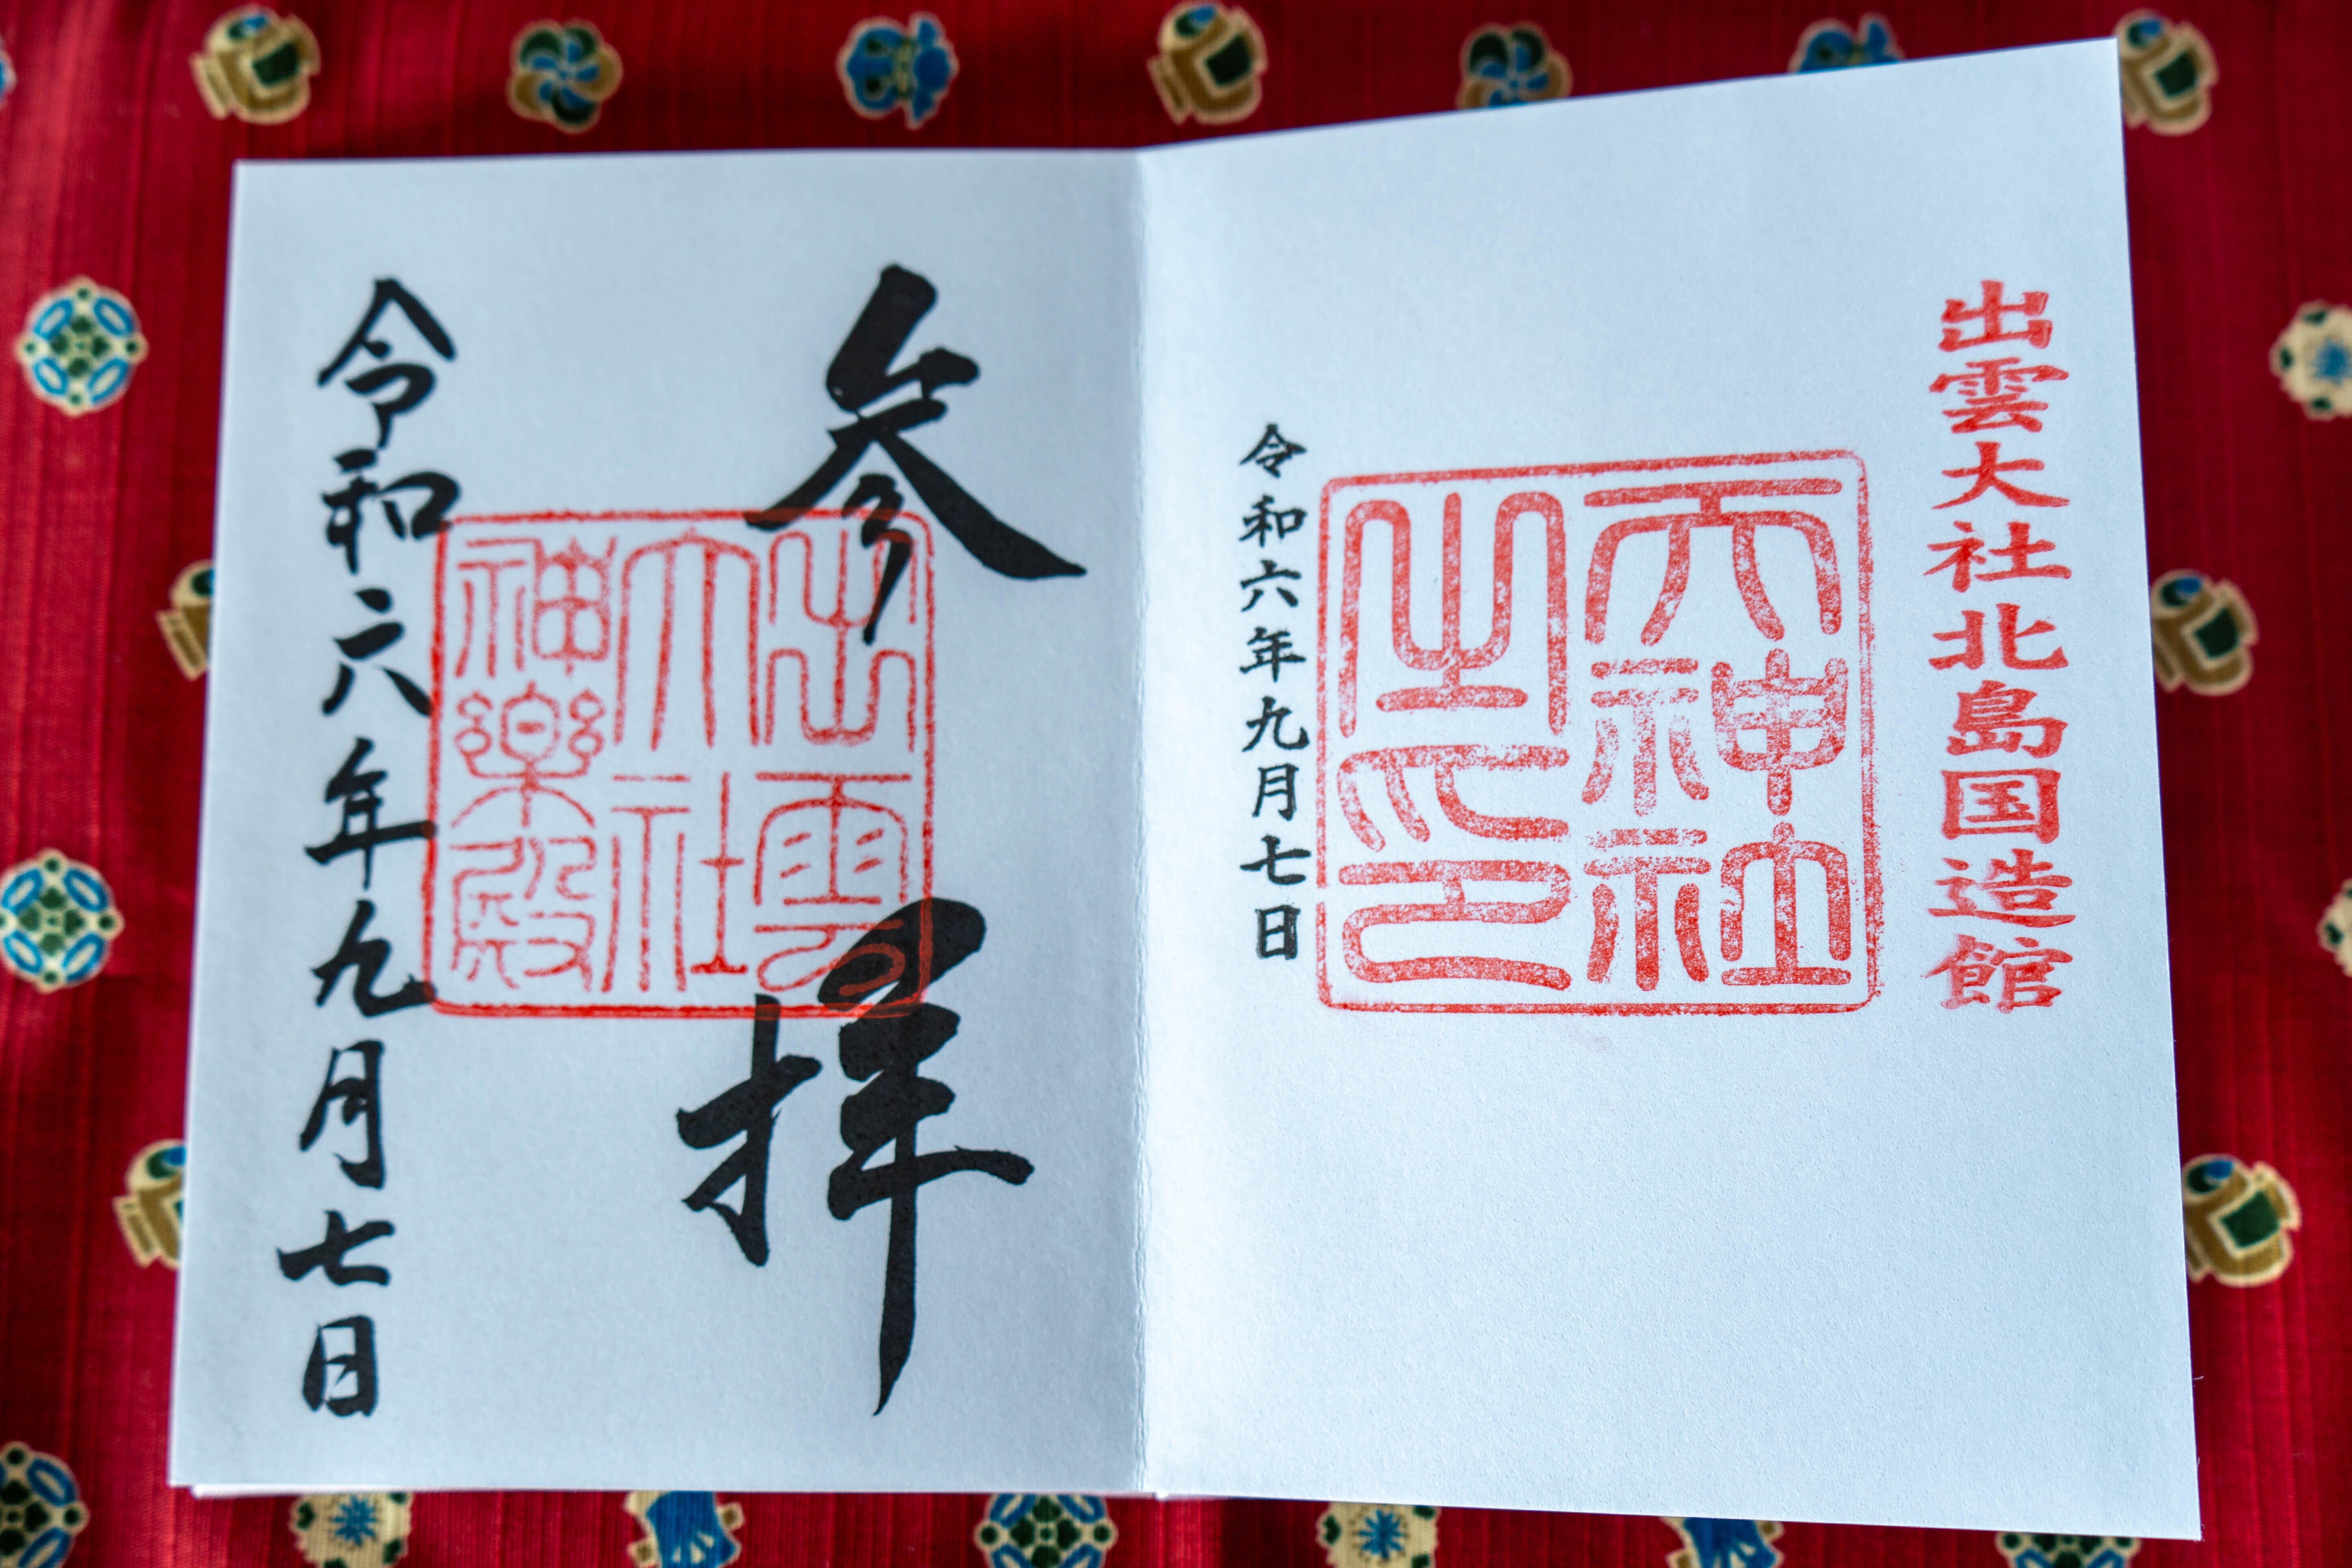 出雲大社北島国造館
天神社
之印
令和六年九月七日
参拝
出雲
大社
神樂殿
令和六年九月七日